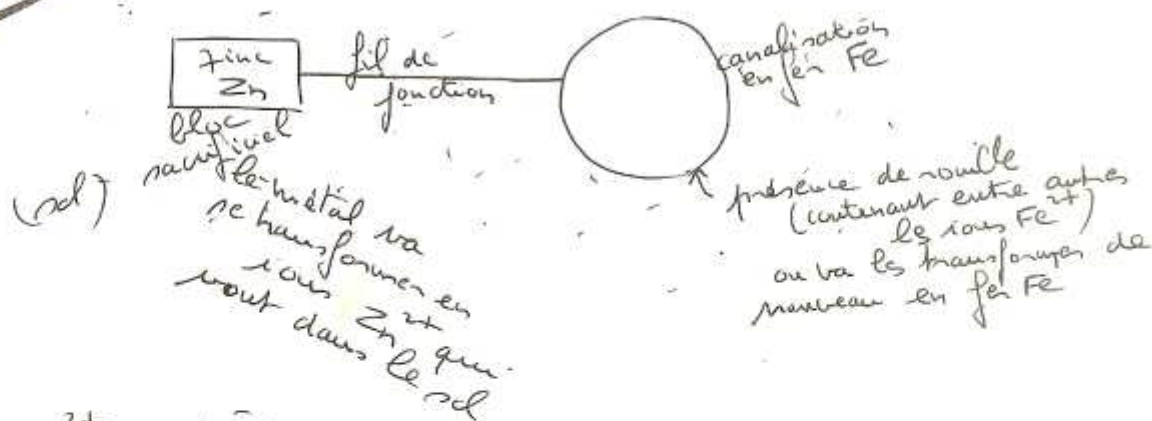 zinc
Zn
bloc
sacrificiel
fil de
jonction
canalisation
en fer Fe
(sol)
le métal va
se transformer en
ions Zn²⁺ qui
vont dans le sol
présence de rouille
(contenant entre autres
les ions Fe²⁺)
on va les transformer de
nouveau en fer Fe